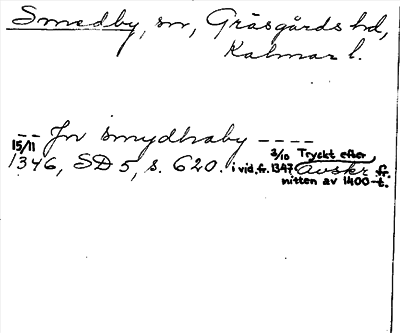 Smedby, sn, Gräsgårds hd,
Kalmar l.
-- Jn smydhraby ----
15/11 1346, SD 5, s. 620. i vid. fr. 1347 3/10 Tryckt efter
avskr. fr.
mitten av 1400-t.